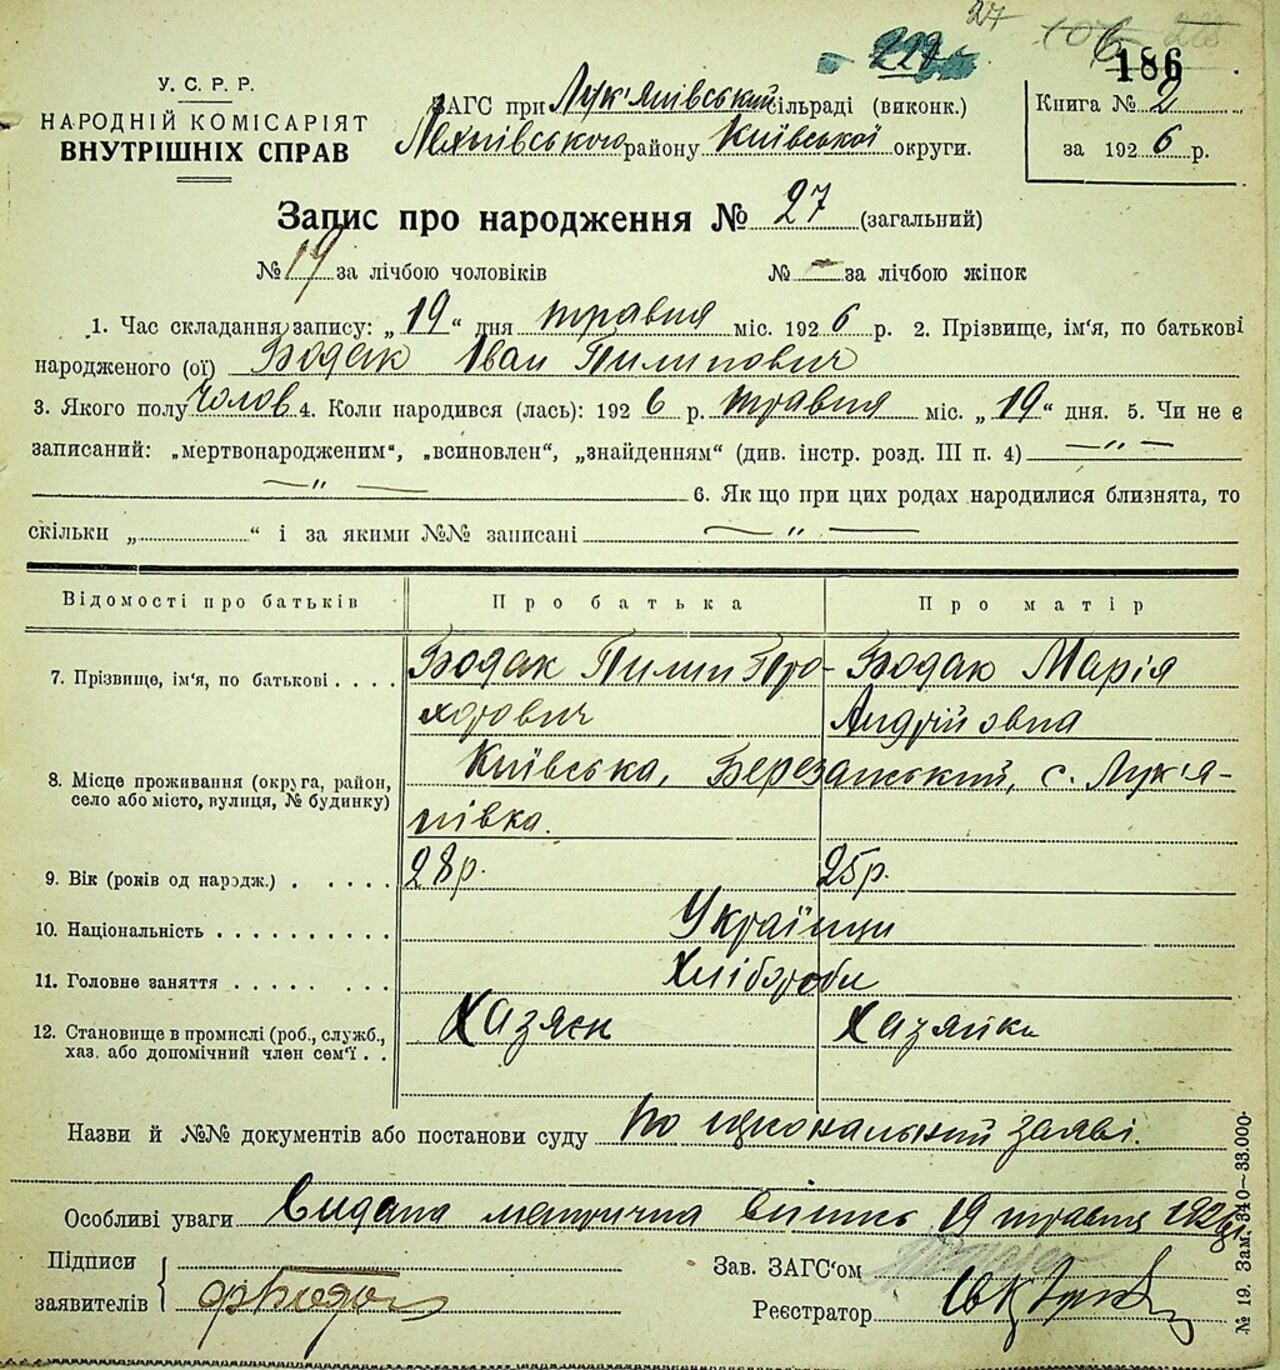 27
186
У. С. Р. Р.
НАРОДНІЙ КОМІСАРІЯТ
ВНУТРІШНІХ СПРАВ
ЗАГС при Лук'янівський сільраді (виконк.)
району Київської округи.
Книга № 2
за 1926 р.
Запис про народження № 27 (загальний)
№ 19 за лічбою чоловіків № — за лічбою жінок
1. Час складання запису: „19“ дня травня міс. 1926 р. 2. Прізвище, ім'я, по батькові
народженого (ої) Бодак Іван Пилипович
3. Якого полу чолов 4. Коли народився (лась): 1926 р. травня міс. „19“ дня. 5. Чи не є
записаний: „мертвонародженим“, „всиновлен“, „знайденням“ (див. інстр. розд. III п. 4) — „ —
— „ — 6. Як що при цих родах народилися близнята, то
скільки „ “ і за якими №№ записані — „ —
Відомості про батьків Про батька Про матір
7. Прізвище, ім'я, по батькові . . . . Бодак Пилип Про- Бодак Марія
хорович Андрійовна
8. Місце проживання (округа, район, село або місто, вулиця, № будинку) Київська, Березанський, с. Лук'я-
нівка.
9. Вік (років од народж.) . . . . . 28 р. 25 р.
10. Національність . . . . . . . . . . Українци
11. Головне заняття . . . . . . . . Хлібороби
12. Становище в промислі (роб., служб., хаз. або допомічний член сем'ї . . Хазяєн Хазяйка
Назви й №№ документів або постанови суду По заяві.
Особливі уваги Видана метрична випись 19 травня 1926 р.
Підписи
заявителів
Зав. ЗАГС'ом
Реєстратор
№ 19. Зам. 340—33.000